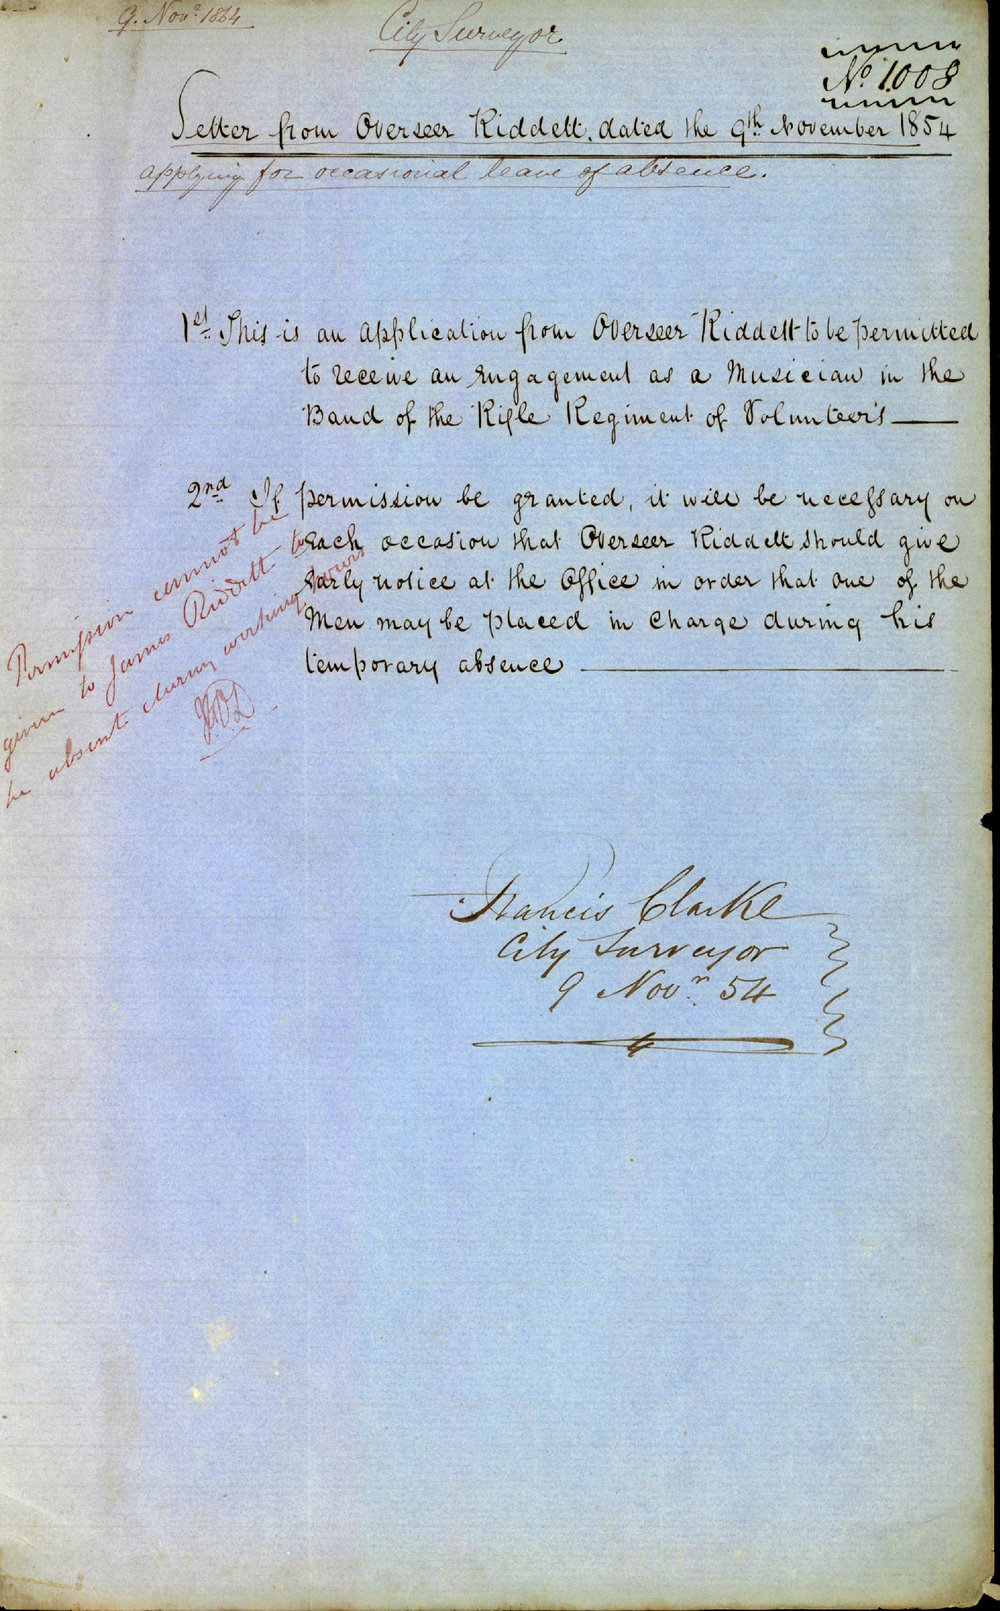 9. Novr 1864
City Surveyor
No 1.008
Letter from Overseer Riddett, dated the 9th November 1854
applying for occasional leave of absence.
1st This is an application from Overseer Riddett to be permitted
to receive an engagement as a Musician in the
Band of the Rifle Regiment of Volunteers
2nd If permission be granted, it will be necessary on
each occasion that Overseer Riddett should give
early notice at the Office in order that one of the
Men may be placed in charge during his
temporary absence
Permission cannot be
given to James Riddett to
be absent during working hours
Francis Clarke
City Surveyor
9 Novr 54